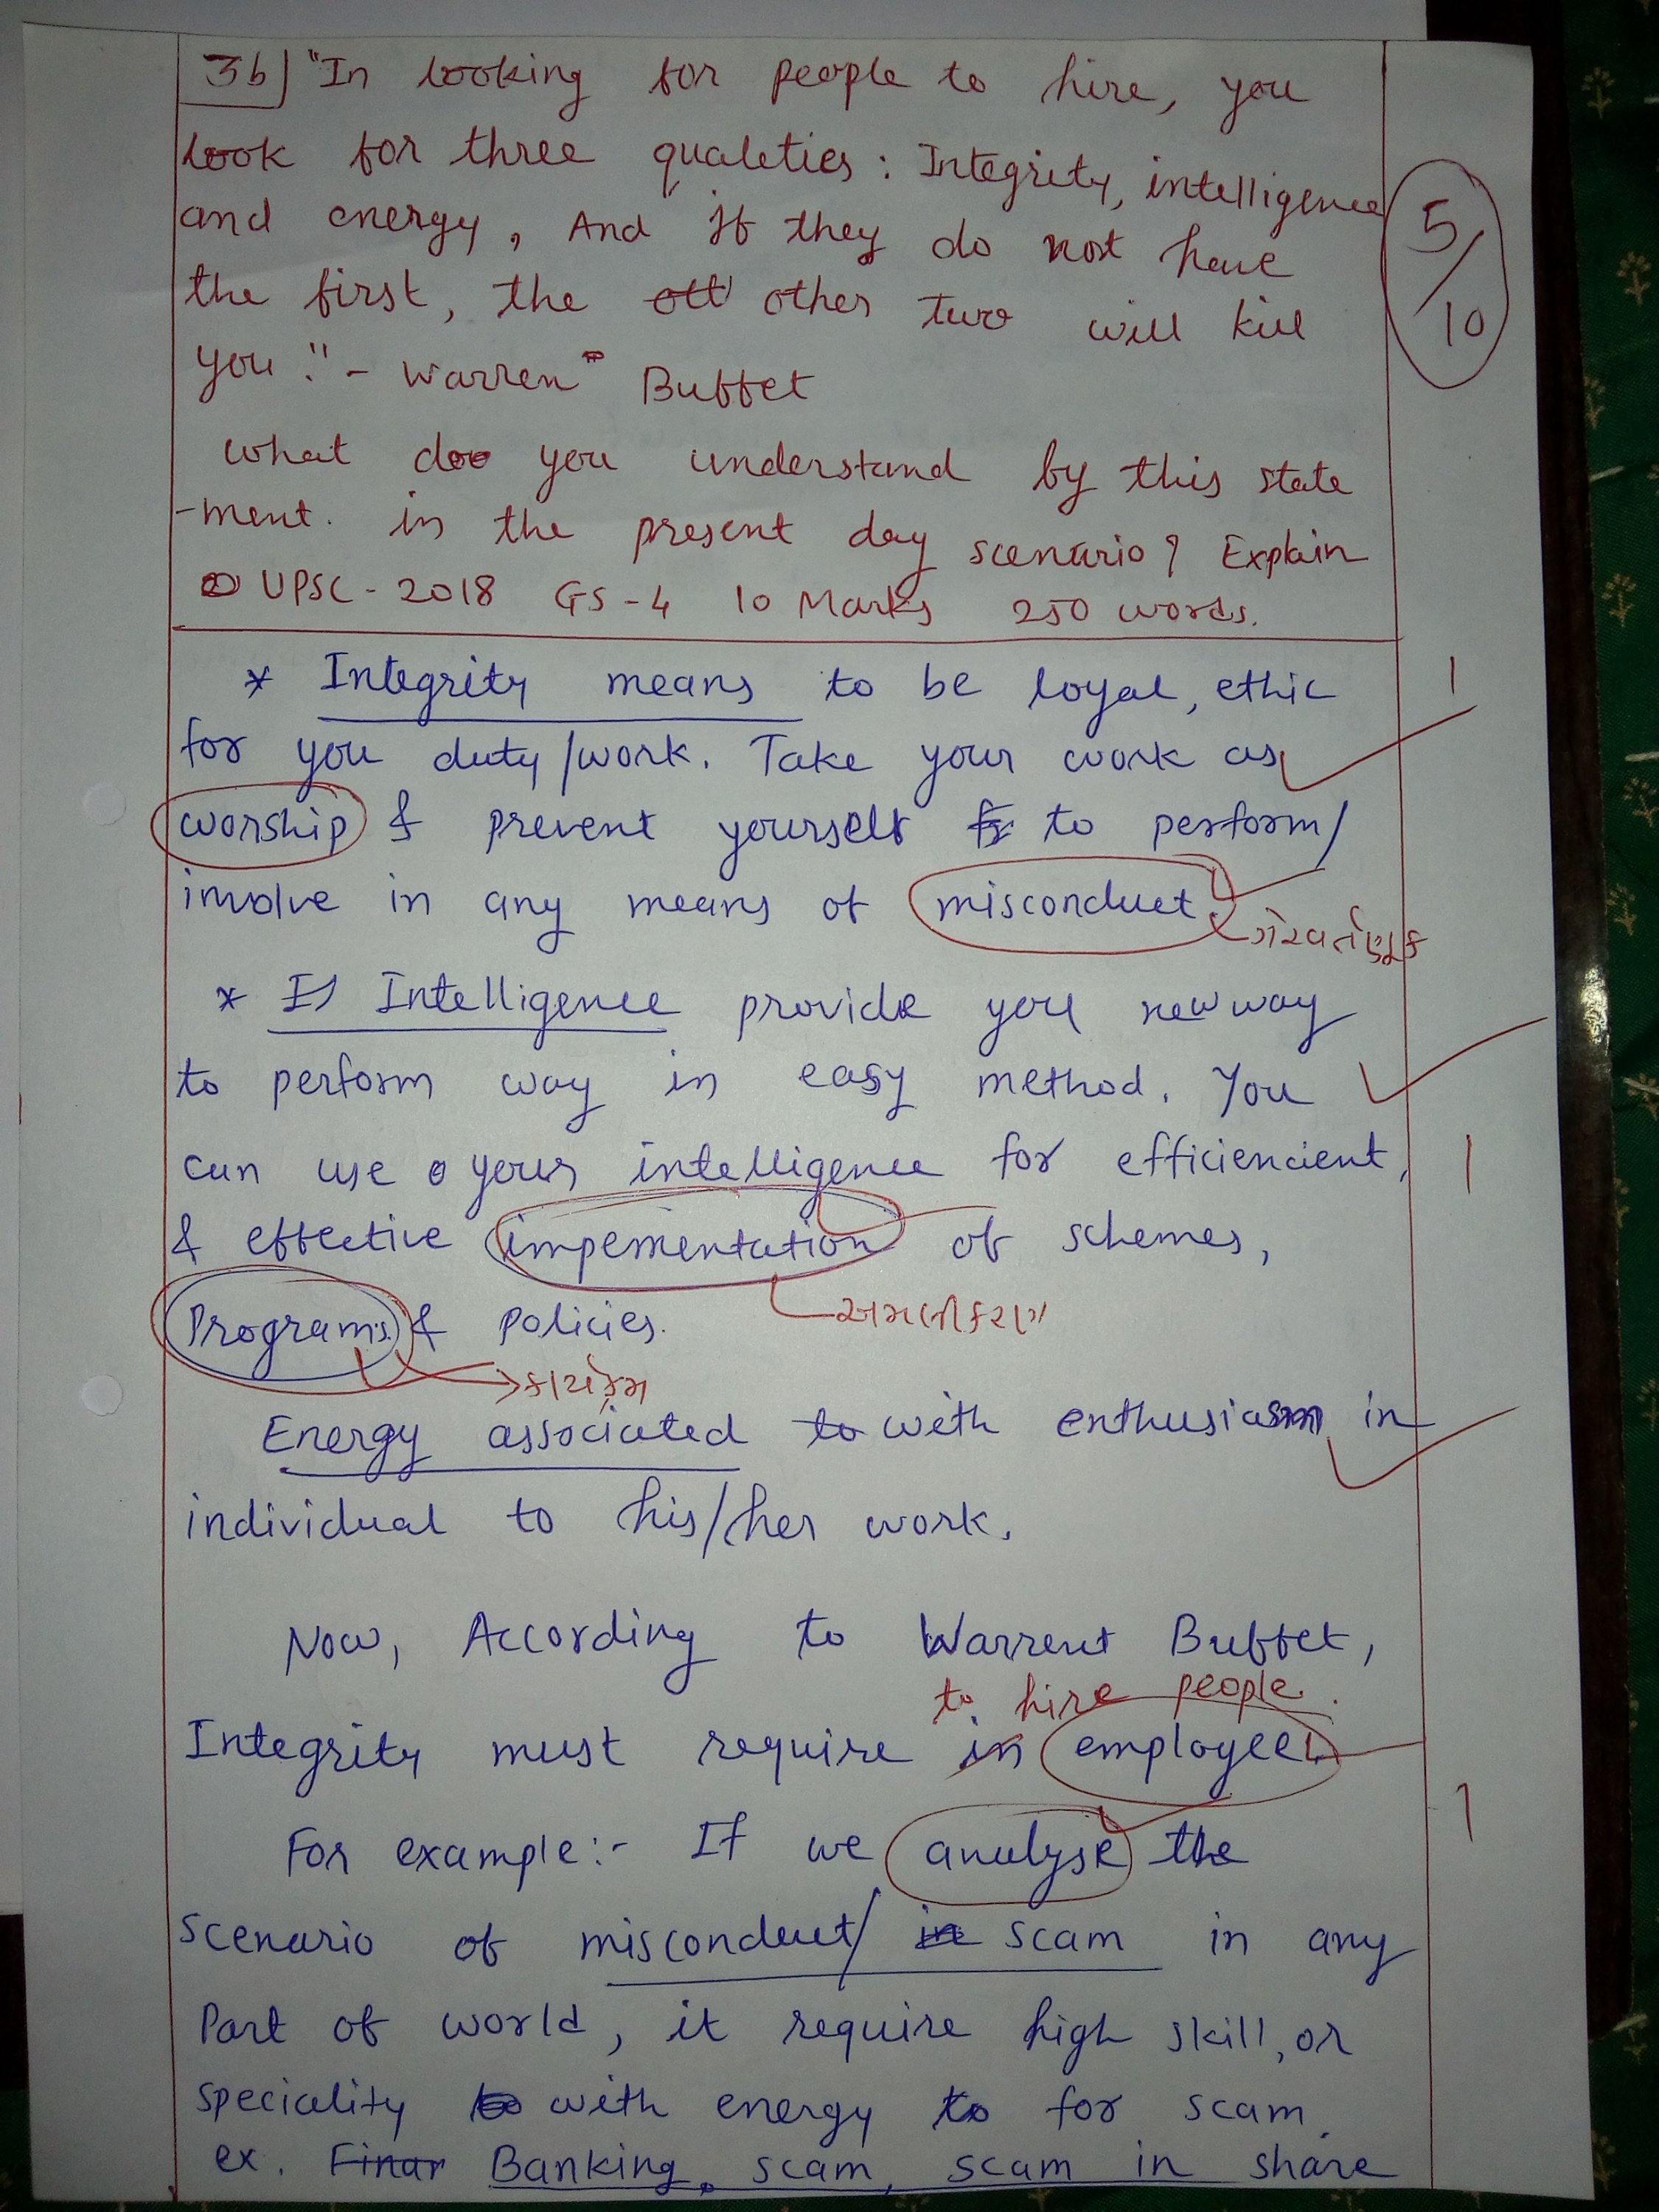 3b) "In looking for people to hire, you
look for three qualeties : Integrity, intelligence
and energy, And if they do not have
the first, the other two will kill
you." - Warren Buffet
What do you understand by this state
-ment. in the present day scenario? Explain
UPSC - 2018 GS - 4 10 Marks 250 words.
5/10
* Integrity means to be loyal, ethic
1
for you duty/work. Take your work as
worship & prevent yourself to perform/
involve in any means of misconduct.
ગેરવર્તણુક
* Intelligence provide you new way
to perform way in easy method. You
can use your intelligence for efficiencient,
1
& effective impementation of schemes,
Programs & policies.
કાર્યક્રમ
Energy associated with enthusiasm in
individual to his/her work.
Now, According to Warrent Buffet,
to hire people.
Integrity must require employees
1
For example:- If we analyse the
scenario of misconduct/ scam in any
Part of world, it require high skill, or
speciality with energy for scam.
ex. Banking scam, scam in share